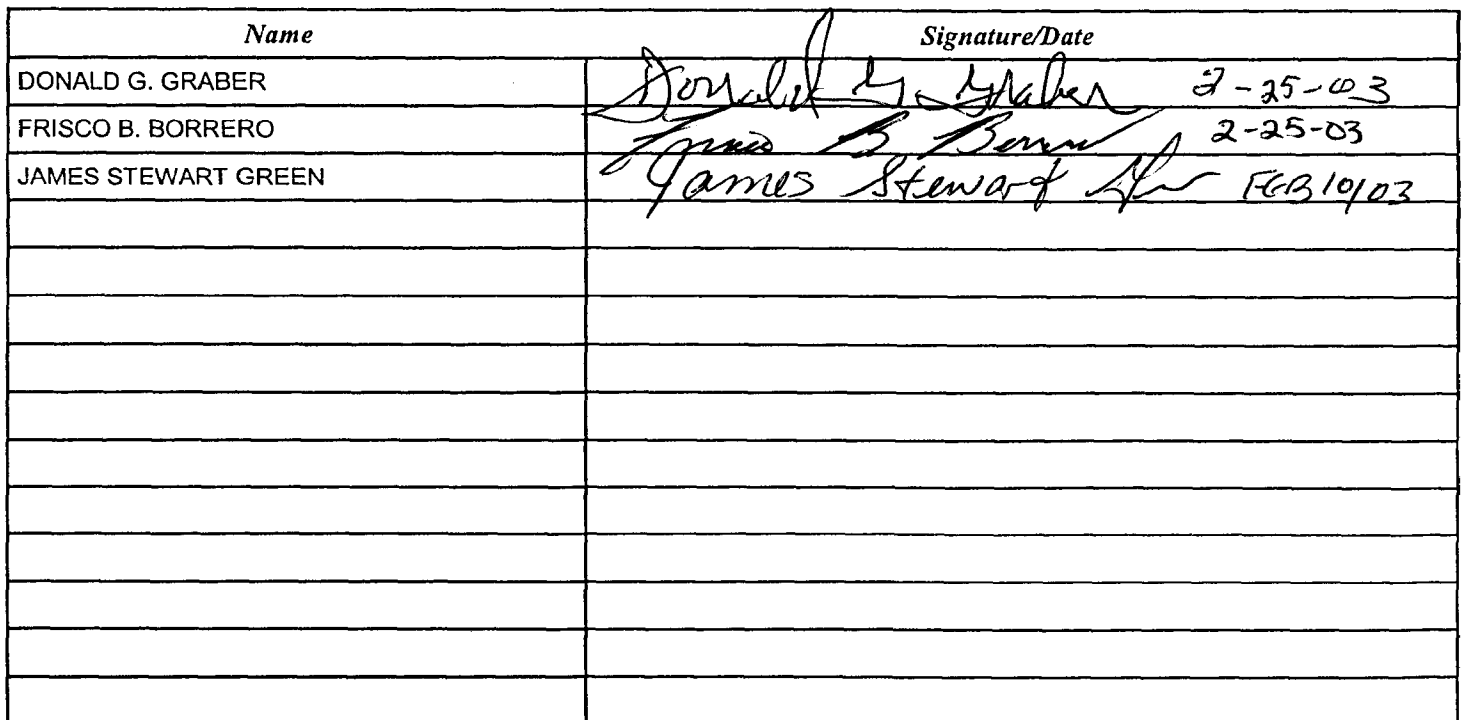 Name Signature/Date
DONALD G. GRABER Donald G. Graber 2-25-03
FRISCO B. BORRERO Frisco B Borrero 2-25-03
JAMES STEWART GREEN James Stewart Green FEB 10/03